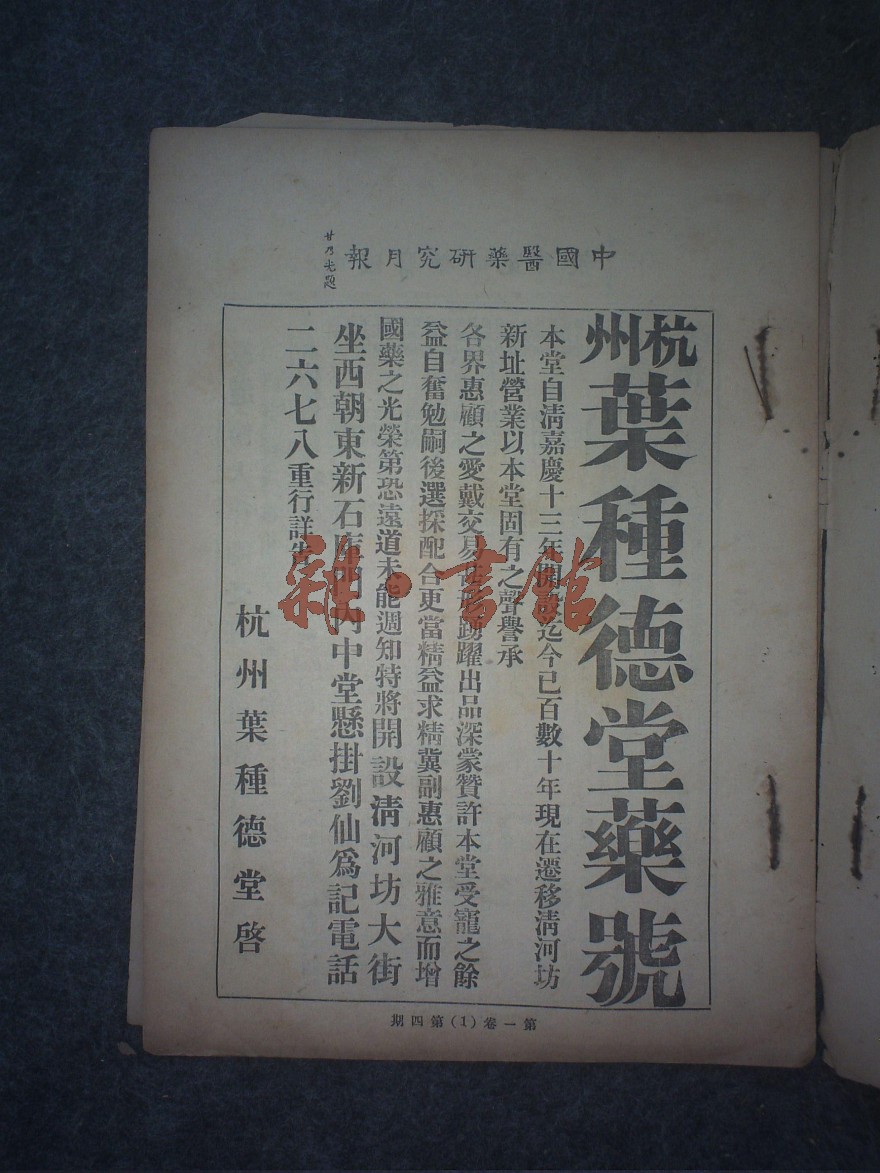 中國醫藥研究月報
杭州葉種德堂藥號
本堂自淸嘉慶十三年開設迄今已百數十年現在遷移淸河坊
新址營業以本堂固有之聲譽承
各界惠顧之愛戴交易踴躍出品深蒙贊許本堂受寵之餘
益自奮勉嗣後選採配合更當精益求精冀副惠顧之雅意而增
國藥之光榮第恐遠道未能週知特將開設淸河坊大街
坐西朝東新石庫門內中堂懸掛劉仙爲記電話
二六七八重行詳告
杭州葉種德堂啓
第一卷(1)第四期
雜·書館